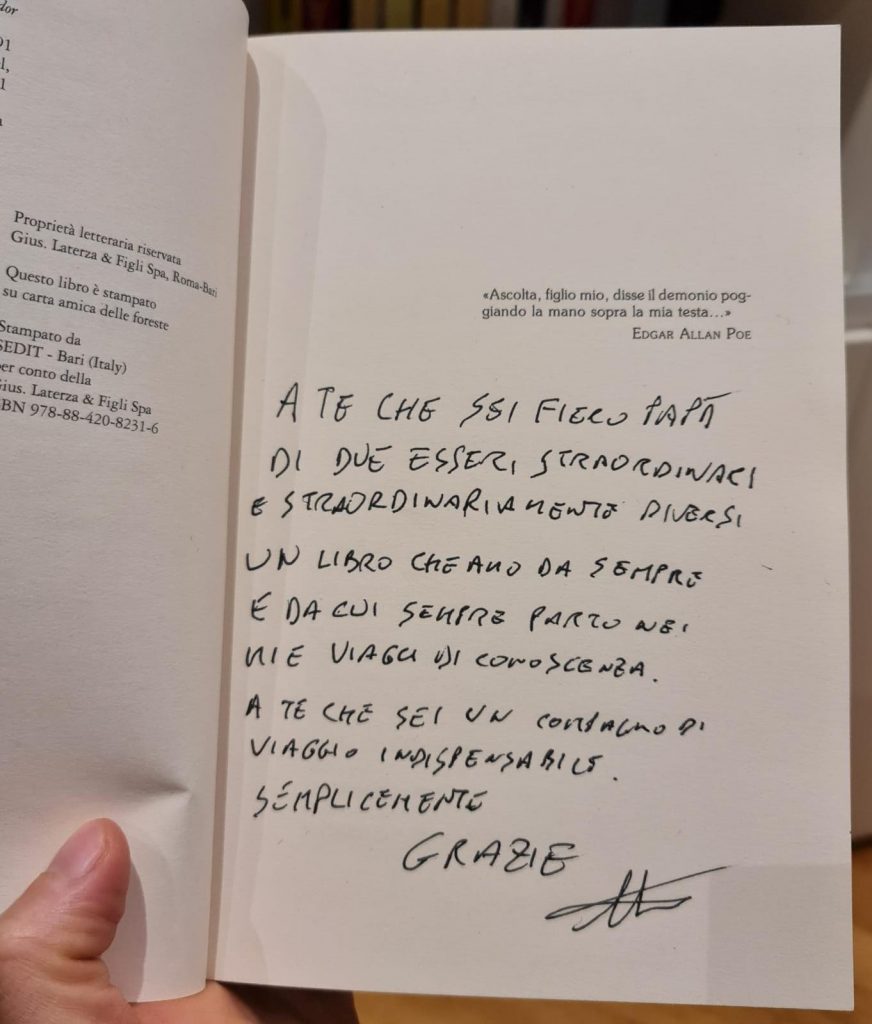 dor
91
l,
1
a
Proprietà letteraria riservata
Gius. Laterza & Figli Spa, Roma-Bari
Questo libro è stampato
su carta amica delle foreste
Stampato da
SEDIT - Bari (Italy)
per conto della
Gius. Laterza & Figli Spa
BN 978-88-420-8231-6
«Ascolta, figlio mio, disse il demonio pog-
giando la mano sopra la mia testa...»
EDGAR ALLAN POE
A TE CHE SEI FIERO PAPÀ
DI DUE ESSERI STRAORDINARI
E STRAORDINARIAMENTE DIVERSI
UN LIBRO CHE AMO DA SEMPRE
E DA CUI SEMPRE PARTO NEI
MIEI VIAGGI DI CONOSCENZA.
A TE CHE SEI UN COMPAGNO DI
VIAGGIO INDISPENSABILE.
SEMPLICEMENTE
GRAZIE